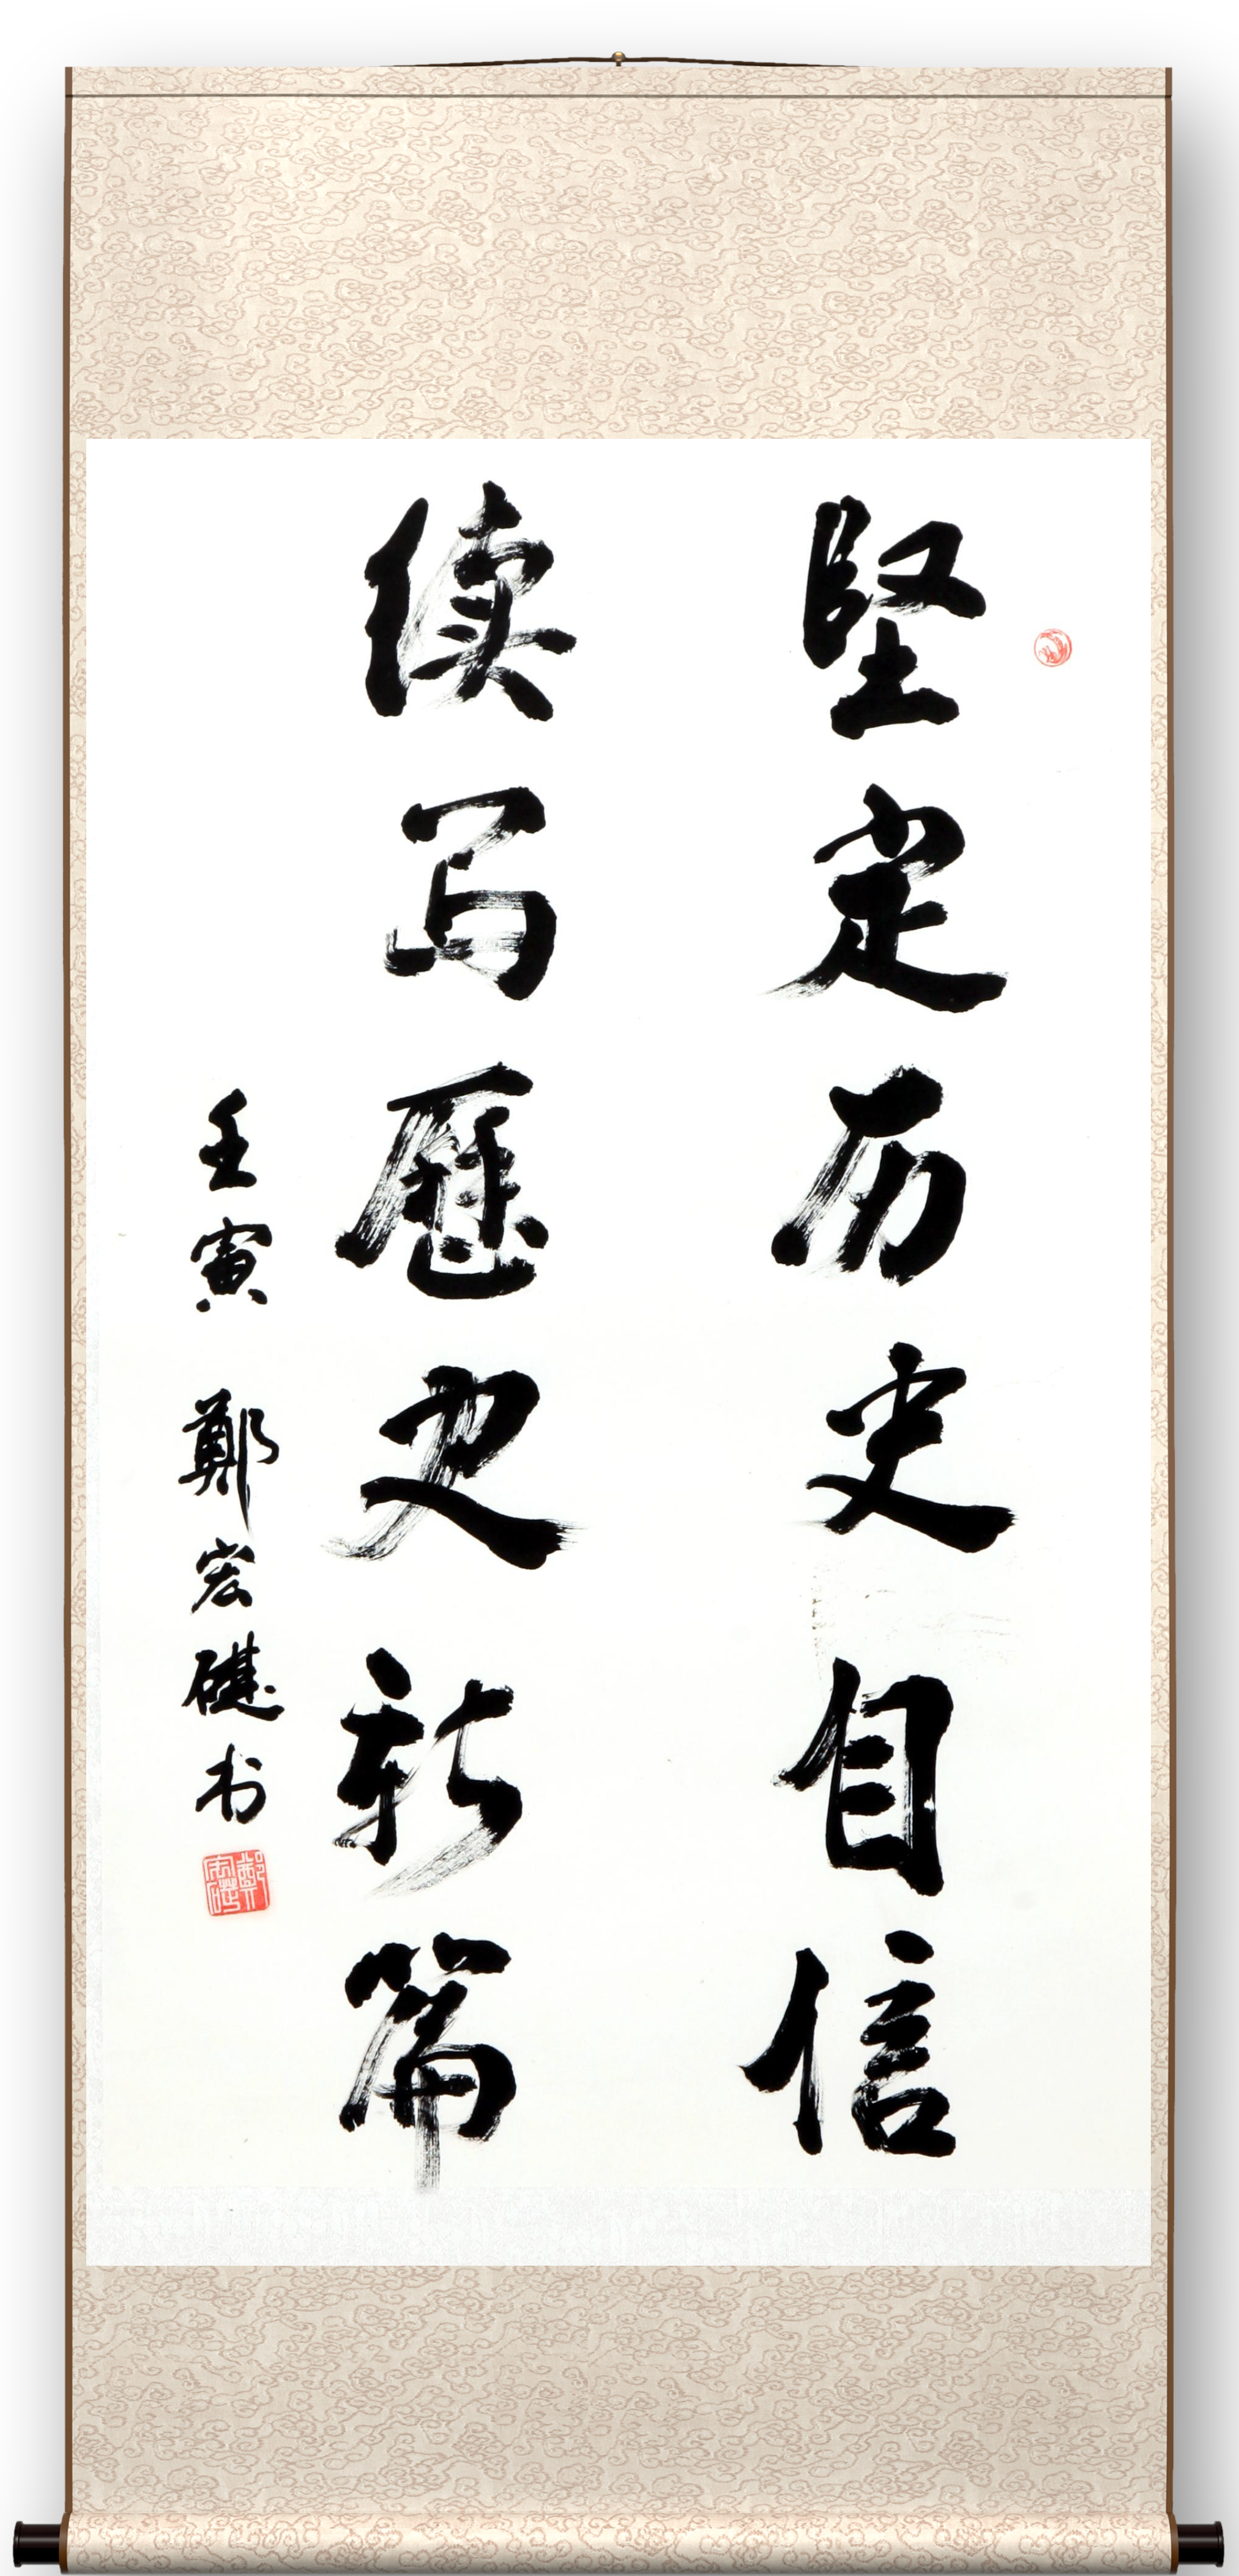 坚定历史自信
续写歷史新篇
壬寅 鄭宏礎书